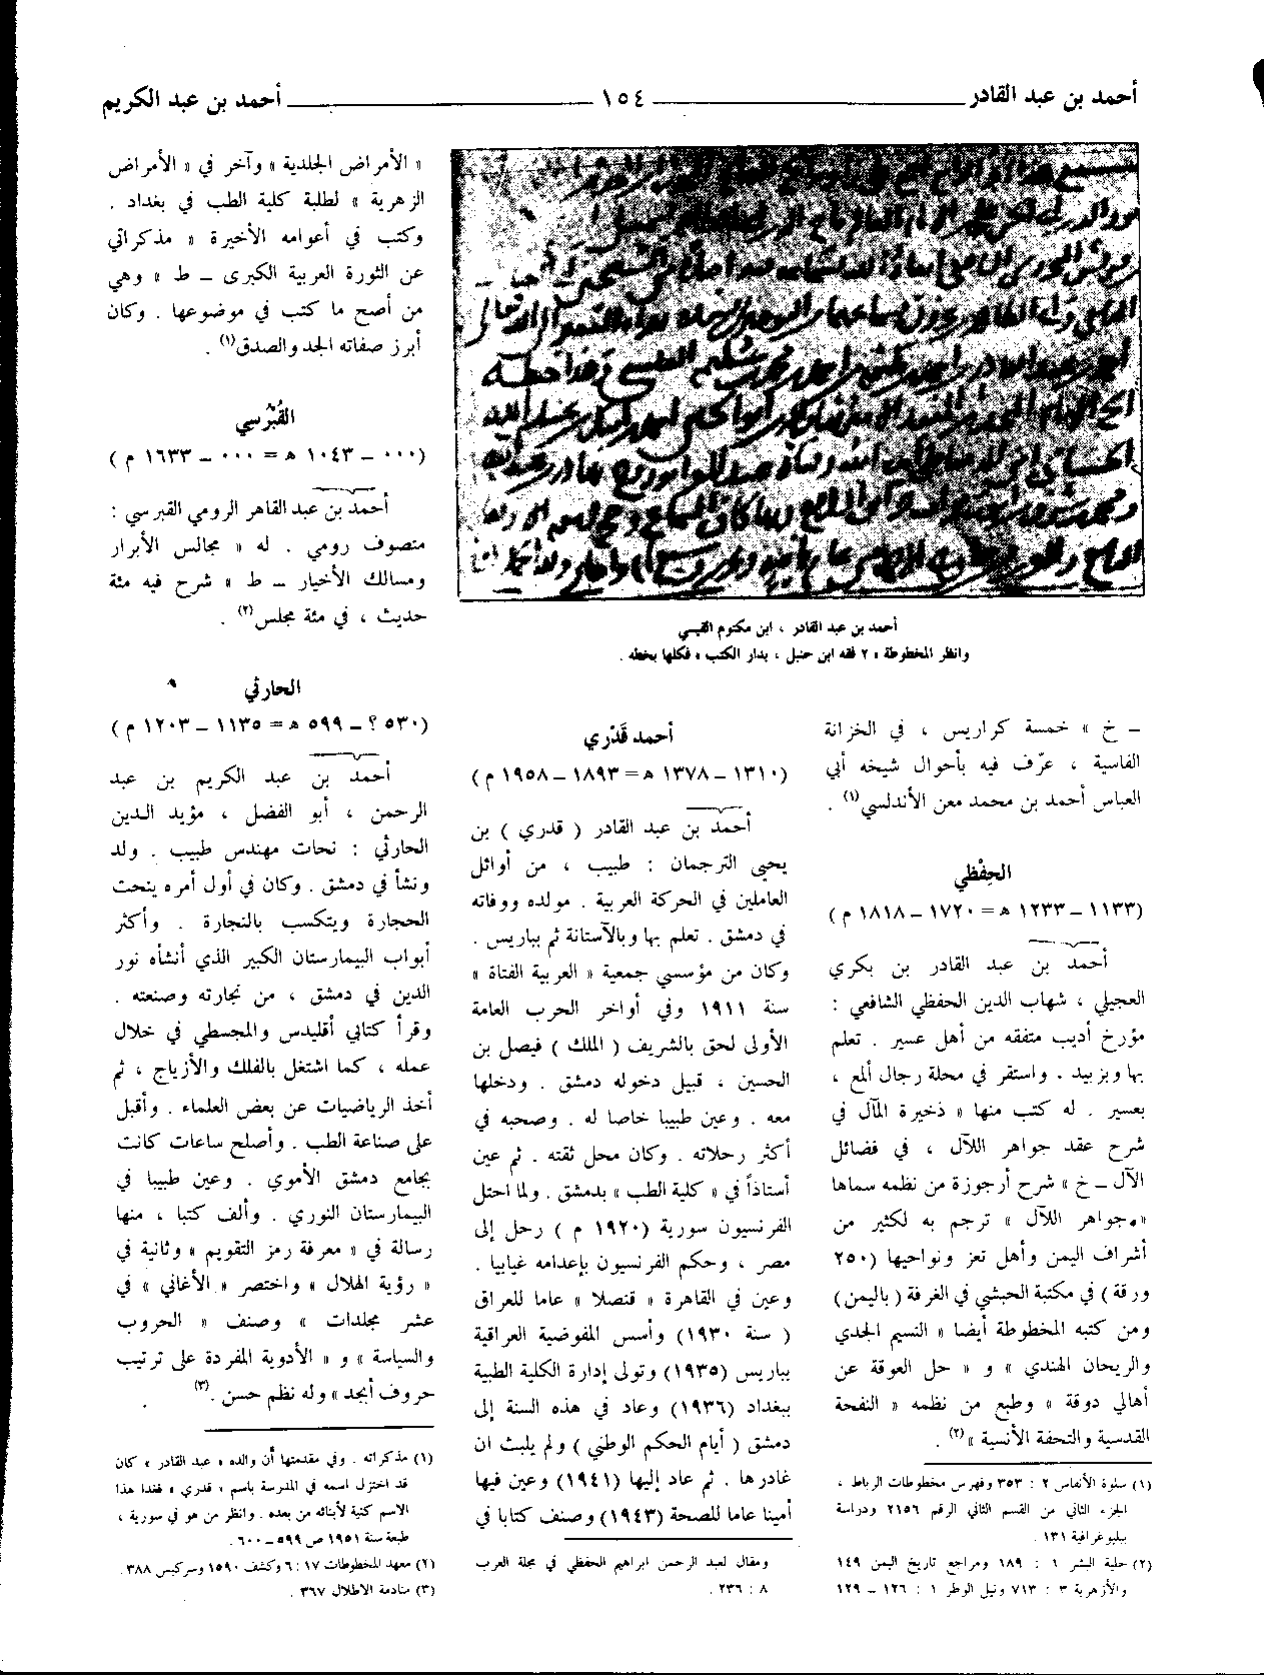 أحمد بن عبد القادر ـــ ١٥٤ ـــ أحمد بن عبد الكريم
أحمد بن عبد القادر ، ابن مكتوم القيسي
وانظر المخطوطة « ٢ فقه ابن حنبل ، بدار الكتب » فكلها بخطه .
ـ خ » خمسة كراريس ، في الخزانة
الفاسية ، عرّف فيه بأحوال شيخه أبي
العباس أحمد بن محمد معن الأندلسي(١) .
الحِفْظي
(١١٣٣ ـ ١٢٣٣ هـ = ١٧٢٠ ـ ١٨١٨ م)
أحمد بن عبد القادر بن بكري
العجيلي ، شهاب الدين الحفظي الشافعي :
مؤرخ أديب متفقه من أهل عسير . تعلم
بها وبزبيد . واستقر في محلة رجال ألمع ،
بعسير . له كتب منها « ذخيرة المآل في
شرح عقد جواهر اللآل ، في فضائل
الآل ـ خ » شرح أرجوزة من نظمه سماها
« جواهر اللآل » ترجم به لكثير من
أشراف اليمن وأهل تعز ونواحيها (٢٥٠
ورقة ) في مكتبة الحبشي في الغرفة ( باليمن)
ومن كتبه المخطوطة أيضا « النسيم الجدي
والريحان الهندي » و « حل العوقة عن
أهالي دوقة » وطبع من نظمه « النفحة
القدسية والتحفة الأنسية »(٢) .
(١) سلوة الأنفاس ٢ : ٣٥٣ وفهرس مخطوطات الرباط ،
الجزء الثاني من القسم الثاني الرقم ٢١٥٦ ودراسة
ببليوغرافية ١٣١ .
(٢) حلية البشر ١ : ١٨٩ ومراجع تاريخ اليمن ١٤٩
والأزهرية ٣ : ٧١٣ ونيل الوطر ١ : ١٢٦ ـ ١٢٩
أحمد قَدْري
(١٣١٠ ـ ١٣٧٨ هـ = ١٨٩٣ ـ ١٩٥٨ م)
أحمد بن عبد القادر ( قدري ) بن
يحيى الترجمان : طبيب ، من أوائل
العاملين في الحركة العربية . مولده ووفاته
في دمشق . تعلم بها وبالآستانة ثم بباريس .
وكان من مؤسسي جمعية « العربية الفتاة »
سنة ١٩١١ وفي أواخر الحرب العامة
الأولى لحق بالشريف ( الملك ) فيصل بن
الحسين ، قبيل دخوله دمشق . ودخلها
معه . وعين طبيبا خاصا له . وصحبه في
أكثر رحلاته . وكان محل ثقته . ثم عين
أستاذاً في « كلية الطب » بدمشق . ولما احتل
الفرنسيون سورية (١٩٢٠ م ) رحل إلى
مصر ، وحكم الفرنسيون بإعدامه غيابيا .
وعين في القاهرة « قنصلا » عاما للعراق
( سنة ١٩٣٠) وأسس المفوضية العراقية
بباريس (١٩٣٥) وتولى إدارة الكلية الطبية
ببغداد (١٩٣٦) وعاد في هذه السنة إلى
دمشق ( أيام الحكم الوطني ) ولم يلبث ان
غادرها . ثم عاد إليها (١٩٤١) وعين فيها
أمينا عاما للصحة (١٩٤٣) وصنف كتابا في
ومقال لعبد الرحمن ابراهيم الحفظي في مجلة العرب
٨ : ٢٣٦ .
« الأمراض الجلدية » وآخر في « الأمراض
الزهرية » لطلبة كلية الطب في بغداد .
وكتب في أعوامه الأخيرة « مذكراتي
عن الثورة العربية الكبرى ـ ط » وهي
من أصح ما كتب في موضوعها . وكان
أبرز صفاته الجد والصدق(١) .
القُبْرُسي
(٠٠٠ ـ ١٠٤٣ هـ = ٠٠٠ ـ ١٦٣٣ م )
أحمد بن عبد القاهر الرومي القبرسي :
متصوف رومي . له « مجالس الأبرار
ومسالك الأخيار ـ ط » شرح فيه مئة
حديث ، في مئة مجلس(٢) .
الحارثي
(٥٣٠ ؟ ـ ٥٩٩ هـ = ١١٣٥ ـ ١٢٠٣ م )
أحمد بن عبد الكريم بن عبد
الرحمن ، أبو الفضل ، مؤيد الدين
الحارثي : نحات مهندس طبيب . ولد
ونشأ في دمشق . وكان في أول أمره ينحت
الحجارة ويتكسب بالنجارة . وأكثر
أبواب البيمارستان الكبير الذي أنشأه نور
الدين في دمشق ، من نجارته وصنعته .
وقرأ كتابي أقليدس والمجسطي في خلال
عمله ، كما اشتغل بالفلك والأزياج ، ثم
أخذ الرياضيات عن بعض العلماء . وأقبل
على صناعة الطب . وأصلح ساعات كانت
بجامع دمشق الأموي . وعين طبيبا في
البيمارستان النوري . وألف كتبا ، منها
رسالة في « معرفة رمز التقويم » وثانية في
« رؤية الهلال » واختصر « الأغاني » في
عشر مجلدات » وصنف « الحروب
والسياسة » و « الأدوية المفردة على ترتيب
حروف أبجد » وله نظم حسن .(٣)
(١) مذكراته . وفي مقدمتها أن والده « عبد القادر » كان
قد اختزل اسمه في المدرسة باسم « قدري » فغدا هذا
الاسم كنية لأبنائه من بعده . وانظر من هو في سورية ،
طبعة سنة ١٩٥١ ص ٥٩٩ ـ ٦٠٠ .
(٢) معهد المخطوطات ١٧ : ٦ وكشف ١٥٩٠ وسركيس ٣٨٨ .
(٣) منادمة الاطلال ٣٦٧ .